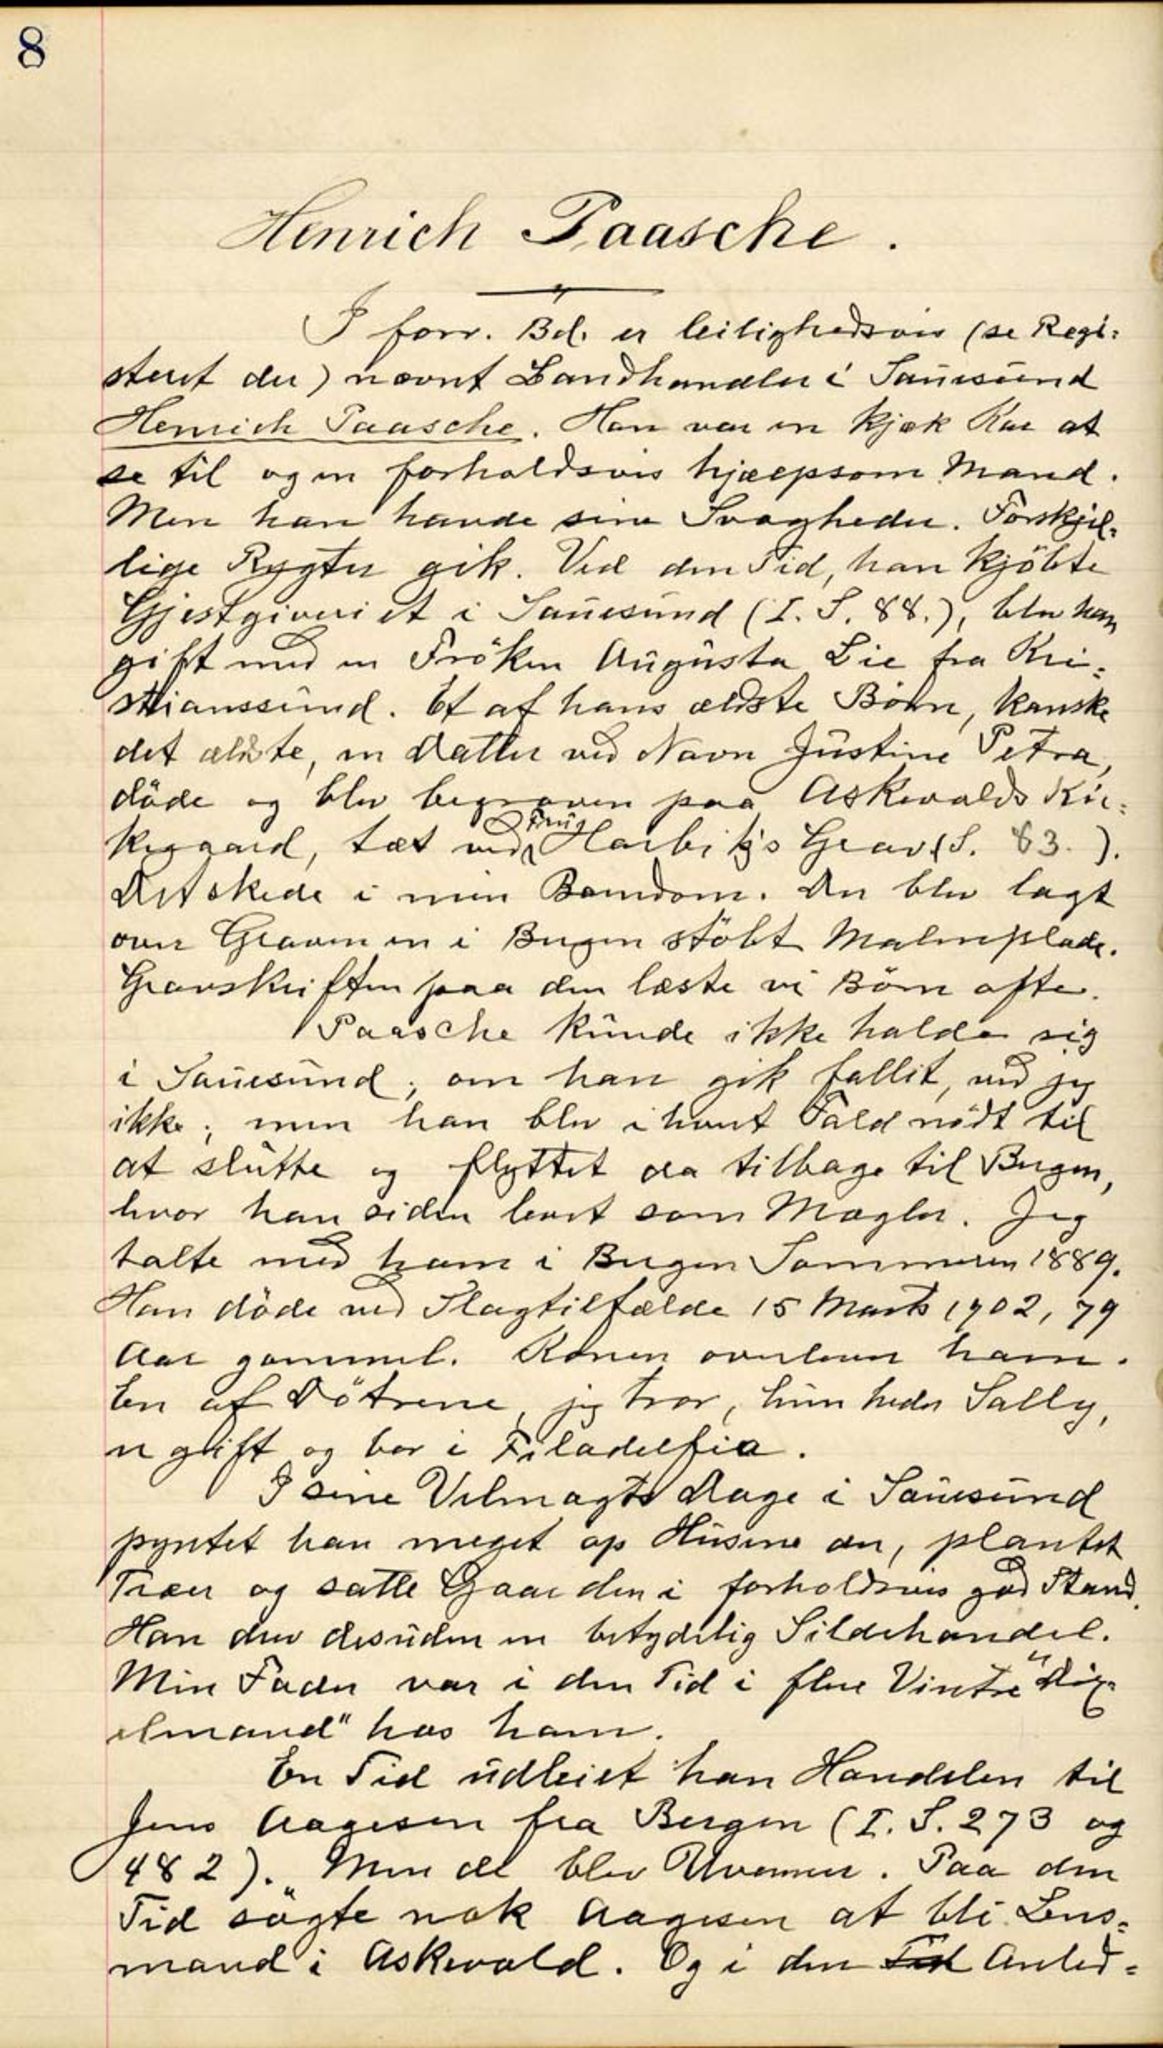 8
Henrich Paasche.
I forr. Bd. er leilighedsvis (se Regi-
steret der) nævnt Landhandler i Sauesund
Henrich Paasche. Han var en kjæk Kar at
se til og en forholdsvis hjælpsom Mand.
Men han havde sine Svagheder. Forskjel-
lige Rygter gik. Ved den Tid, han kjöbte
Gjestgiveriet i Sauesund (I. S. 88.), blev han
gift med en Fröken Augusta Lie fra Kri-
stianssund. Et af hans ældste Börn, kanske
det ældste, en Datter ved Navn Justine Petra,
döde og blev begraven paa Askevolds Kir-
kegaard, tæt ved Fru Harbitz's Grav (S. 83.).
Det skede i min Barndom. Der blev lagt
over Graven en i Bergen stöbt Malmplade.
Gravskriften paa den læste vi Börn ofte.
Paasche kunde ikke holde sig
i Sauesund; om han gik fallit, ved jeg
ikke; men han blev i hvert Fald nödt til
at slutte og flyttet da tilbage til Bergen,
hvor han siden levet som Mægler. Jeg
talte med ham i Bergen Sommeren 1889.
Han döde ved Slagtilfælde 15 Marts 1902, 79
Aar gammel. Konen overlever ham.
En af Dötrene, jeg tror, hun heder Sally,
er gift og bor i Filadelfia.
I sine Velmagts Dage i Sauesund
pyntet han meget op Husene der, plantet
Træer og satte Gaarden i forholdsvis god Stand.
Han drev desuden en betydelig Sildehandel.
Min Fader var i den Tid i flere Vintre "Dix-
elmand" hos ham.
En Tid udleiet han Handelen til
Jens Aagesen fra Bergen (I. S. 273 og
482). Men de blev Uvenner. Paa den
Tid sögte nok Aagesen at bli Lens-
mand i Askevold. Og i den Tid Anled-